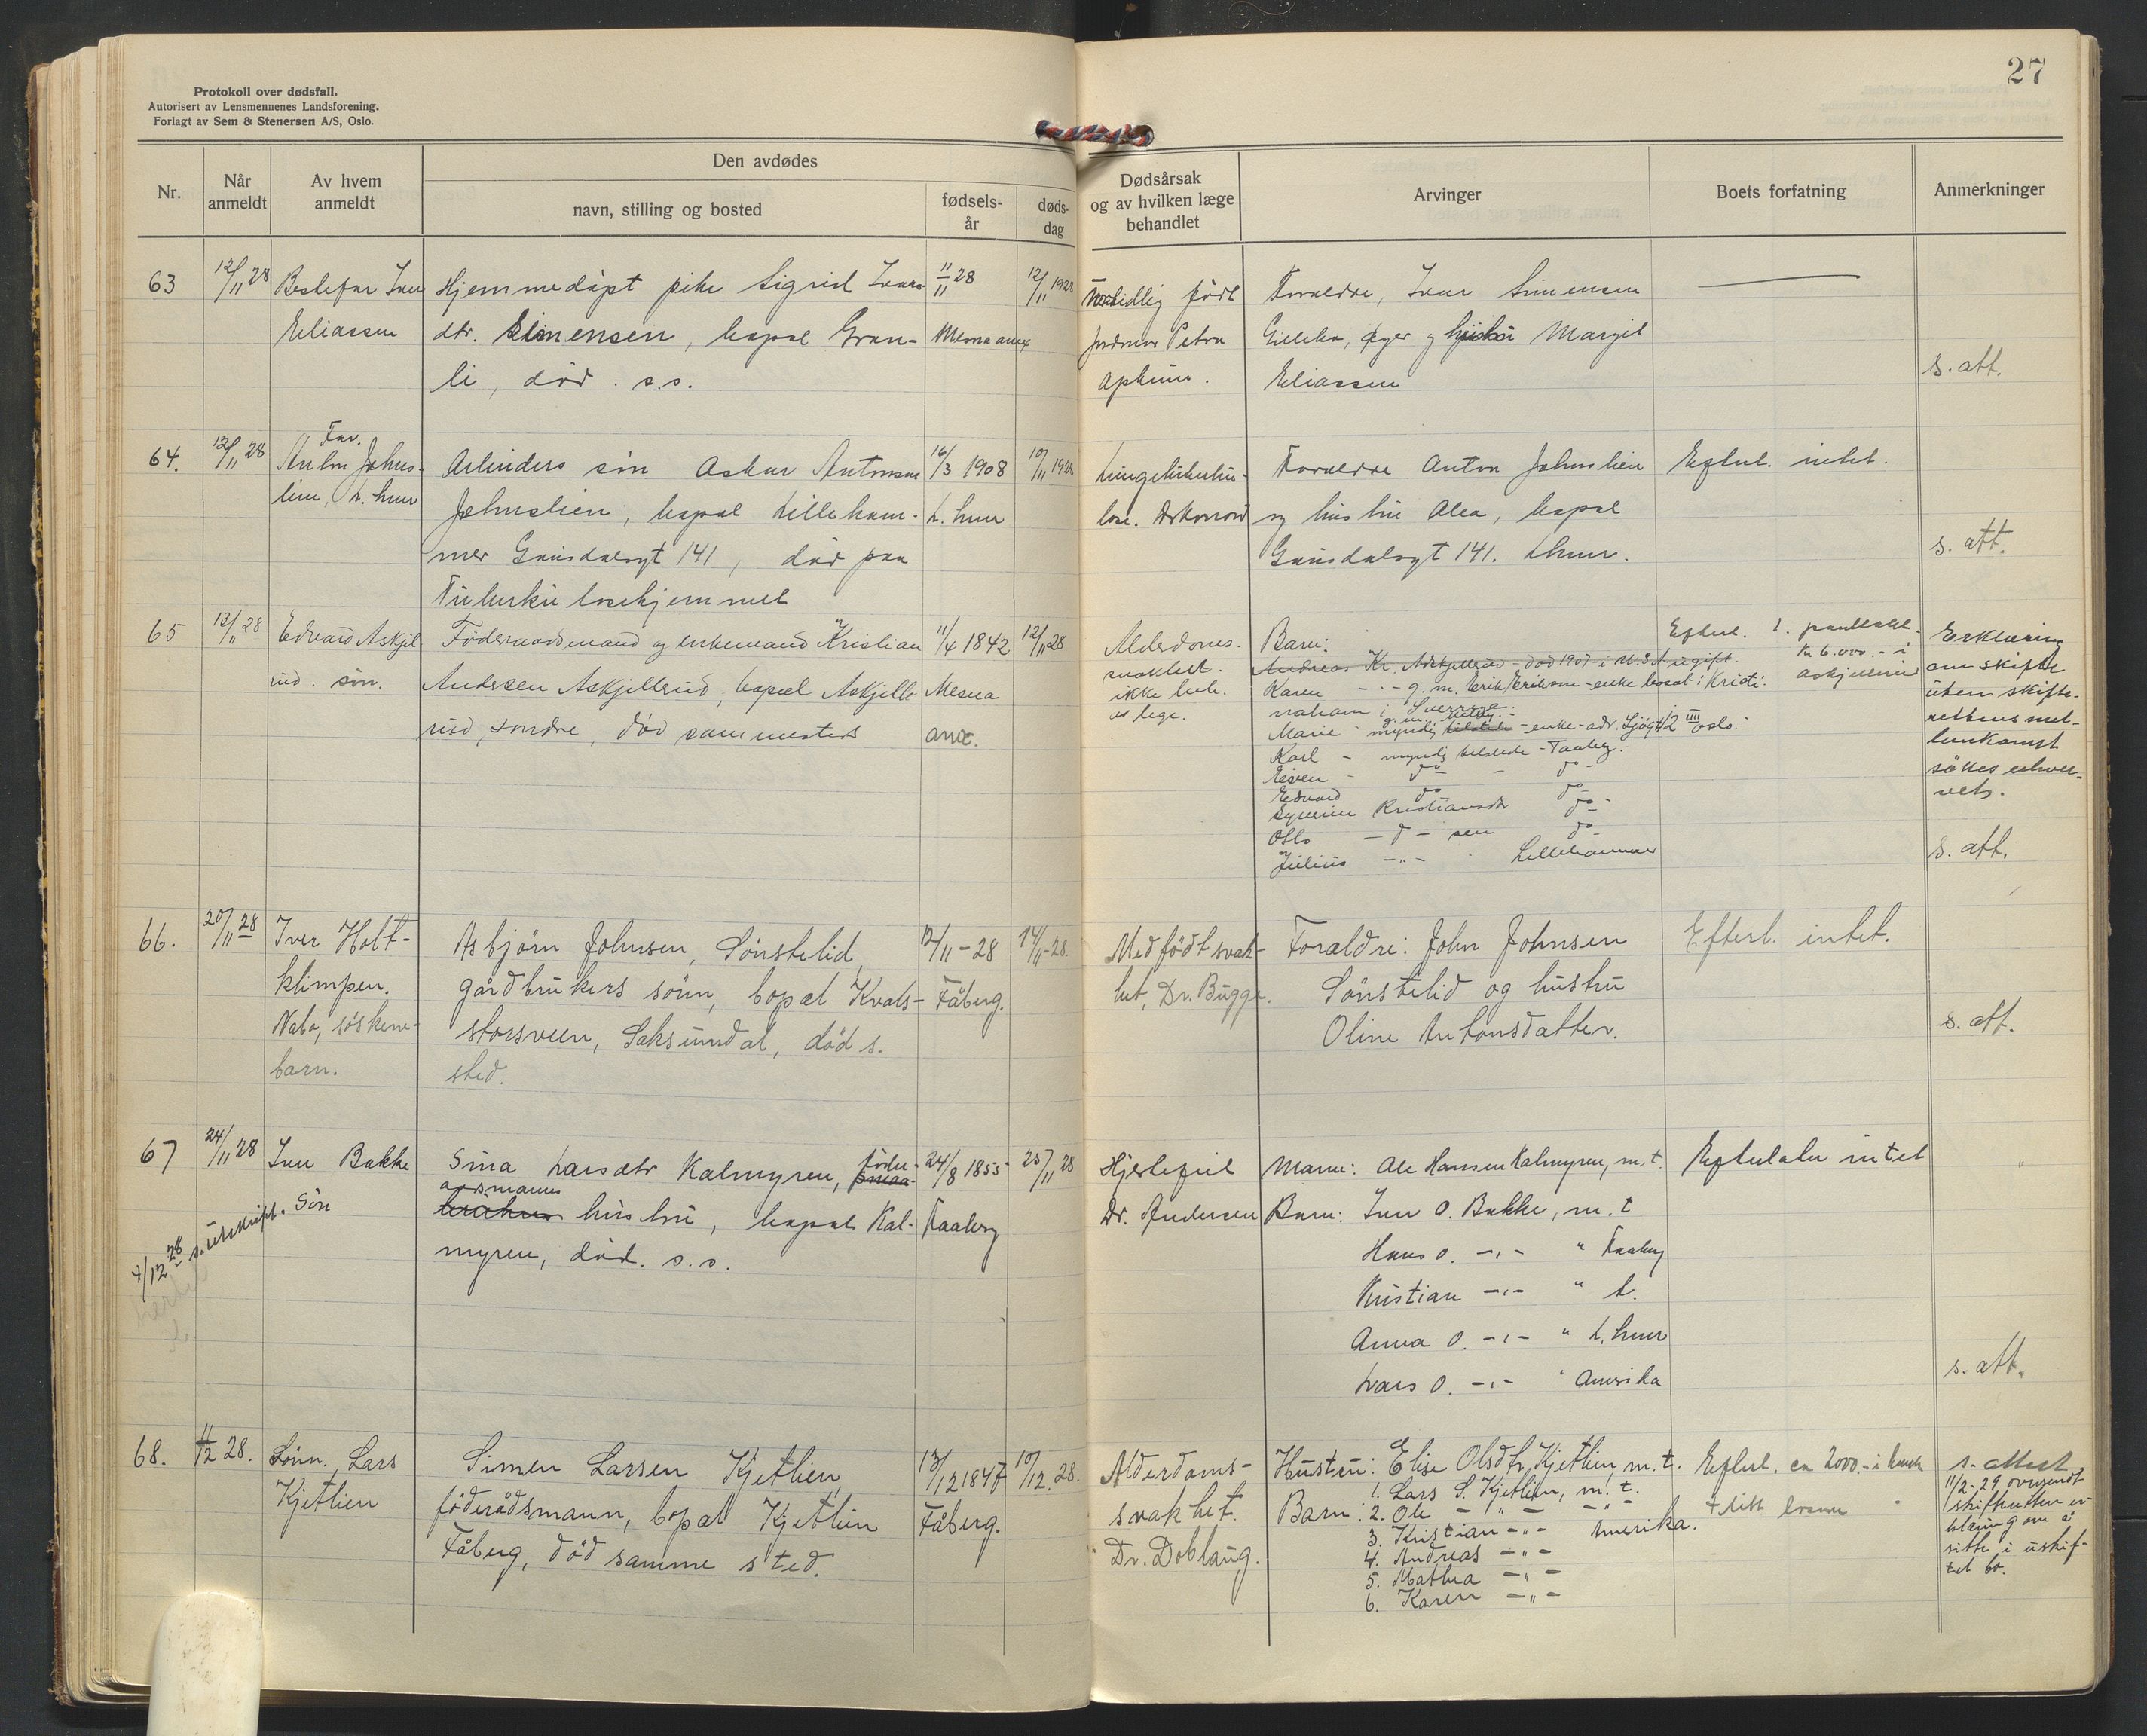 27
Protokoll over dødsfall.
Autorisert av Lensmennenes Landsforening.
Forlagt av Sem & Stenersen A/S, Oslo.
Nr.
Når anmeldt
Av hvem anmeldt
Den avdødes
navn, stilling og bosted
fødsels-år
døds-dag
Dødsårsak og av hvilken læge behandlet
Arvinger
Boets forfatning
Anmerkninger
63
12/11 28
Bestefar Iver
Eliassen
Hjemmedøpt pike Sigrid Ivars-
dtr. Simensen, bopæl Gran-
li, død s.s.
11/11 28
Mesna anex
12/11 1928
født
Jordmor Petra
Forældre, Ivar Simensen
og hustru Margit
Eliassen
s. att.
64.
12/11 28
Far.
Anton Johns-
lien, L.hmr
Arbeiders søn Oskar Antonsen
Johnslien, bopæl Lilleham-
mer Gausdalsgt 141, død paa
Tuberkulosehjemmet
16/3 1908
L.hmr
10/11 1928
Lungetuberku-
lose.
Forældre Anton Johnslien
og hustru Alea, bopæl
Gausdalsgt 141. Lhmr.
Efterl. intet.
s. att.
65
12/11 28
Edvard Askjel
rud. søn.
Føderaadsmand og enkemand Kristian
Andersen Askjellrud, bopæl Askjell-
rud, søndre, død sammesteds
11/4 1842
Mesna
anx.
12/11 28
Alderdoms-
svakhet.
ikke beh.
av læge.
Barn:
Andreas Kr. Askjellrud - død 1907 i U.S.A ugift.
Karen -"- g.m. Erik Eriksen - enke bosat i Kristi-
naham i Sverrige.
Marie - myndig - enke - adr. Sjøgt 12 III Oslo.
Karl - myndig tilstede - Faaberg.
Eiven - do - do -
Edvard do do
Syverin Kristiansdtr do -
Otto - d - sen do -
Julius -"- Lillehammer
Efterl. 1. pantobl.
Kr. 6.000.- i
Erklæring
om skifte
uten skifte-
rettens mel-
lemkomst
søkes erhver-
vet.
s. att.
66.
20/11 28
Iver Holt-
klimpen.
Nabo, søskene-
barn.
Asbjørn Johnsen, Sønstelid,
gårdbrukers sønn, bopæl Kvals-
storsveen, Saksumdal, død s.
sted.
12/11 - 28
Fåberg.
14/11 - 28.
Medfödt svak-
het, Dr. Bugge.
Forældre: John Johnsen
Sønstelid og hustru
Oline Antonsdatter.
Efterl. intet.
s. att.
67
24/11 28
Iver Bakke
Søn
4/12 28 s. utskrift.
Sina Larsdtr Kalmyren, föder-
aadsmanns
hustru, bopæl Kal-
myren, død. s.s.
24/8 1855
Faaberg
23/11 28
Hjertefeil
Dr. Andersen
Mann: Ole Hansen Kalmyren, m.t.
Barn: Iver O. Bakke, m.t
Hans O. -"- " Faaberg
Kristian -"- " t.
Anna O. -"- " L.hmr
Lars O. -"- " Amerika
Efterlater intet
s. att.
68.
11/12 28.
Sønn. Lars
Kjetlien
Simen Larsen Kjetlien,
föderådsmann, bopæl Kjetlien
Fåberg, død samme sted.
13/12 1847
Fåberg.
10/12. 28.
Alderdoms-
svakhet.
Dr. Doblaug.
Hustru: Elise Olsdtr. Kjetlien, m.t.
Barn: 1. Lars S. Kjetlien, m.t.
2. Ole -"- -"-
3. Kristian -"- Amerika.
4. Andreas -"-
5. Mathea -"-
6. Karen -"-
Efterl. ca 2000.- i bank
+ litt løsøre
s. attest
11/2-29 oversendt
skifteretten er-
klæring om å
sitte i uskif-
tet bo.